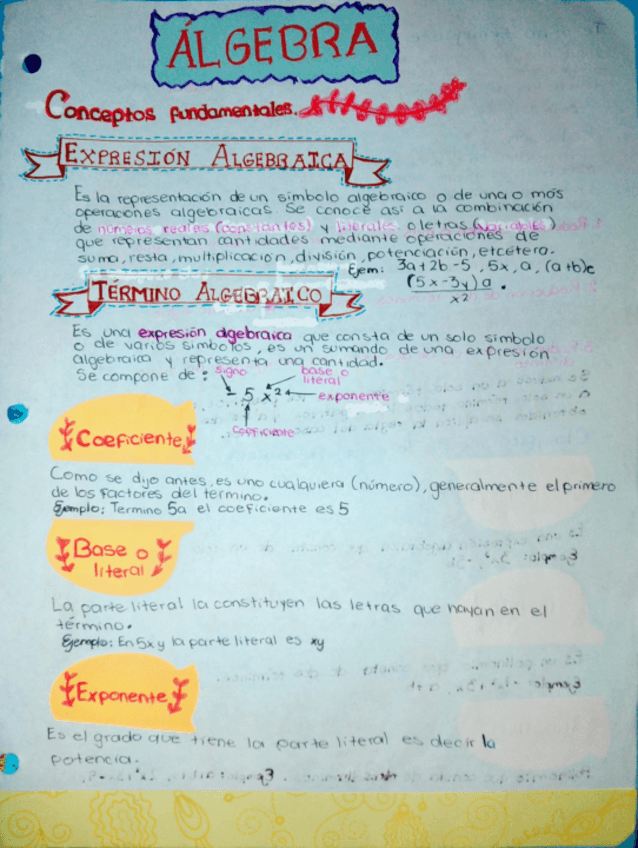 ÁLGEBRA
Conceptos fundamentales.
EXPRESIÓN ALGEBRAICA
Es la representación de un símbolo algebraico o de una o más
operaciones algebraicas. Se conoce así a la combinación
de números reales (constantes) y literales o letras (variables)
que representan cantidades mediante operaciones de
suma, resta, multiplicación, división, potenciación, etcétero.
Ejem: 3a+2b-5, 5x, a, (a+b)c
(5x-3y)a .
x²
TÉRMINO ALGEBRAICO
Es una expresión algebraica que consta de un solo símbolo
o de varios símbolos, es un sumando de una expresión
algebraica y representa una cantidad.
Se compone de: signo base o
literal
- 5 x² exponente
coeficiente
Coeficiente
Como se dijo antes, es uno cualquiera (número), generalmente el primero
de los factores del termino.
Ejemplo: Termino 5a el coeficiente es 5
Base o
literal
La parte literal la constituyen las letras que hayan en el
término.
Ejemplo: En 5xy la parte literal es xy
Exponente
Es el grado que tiene la parte literal es decir la
potencia.